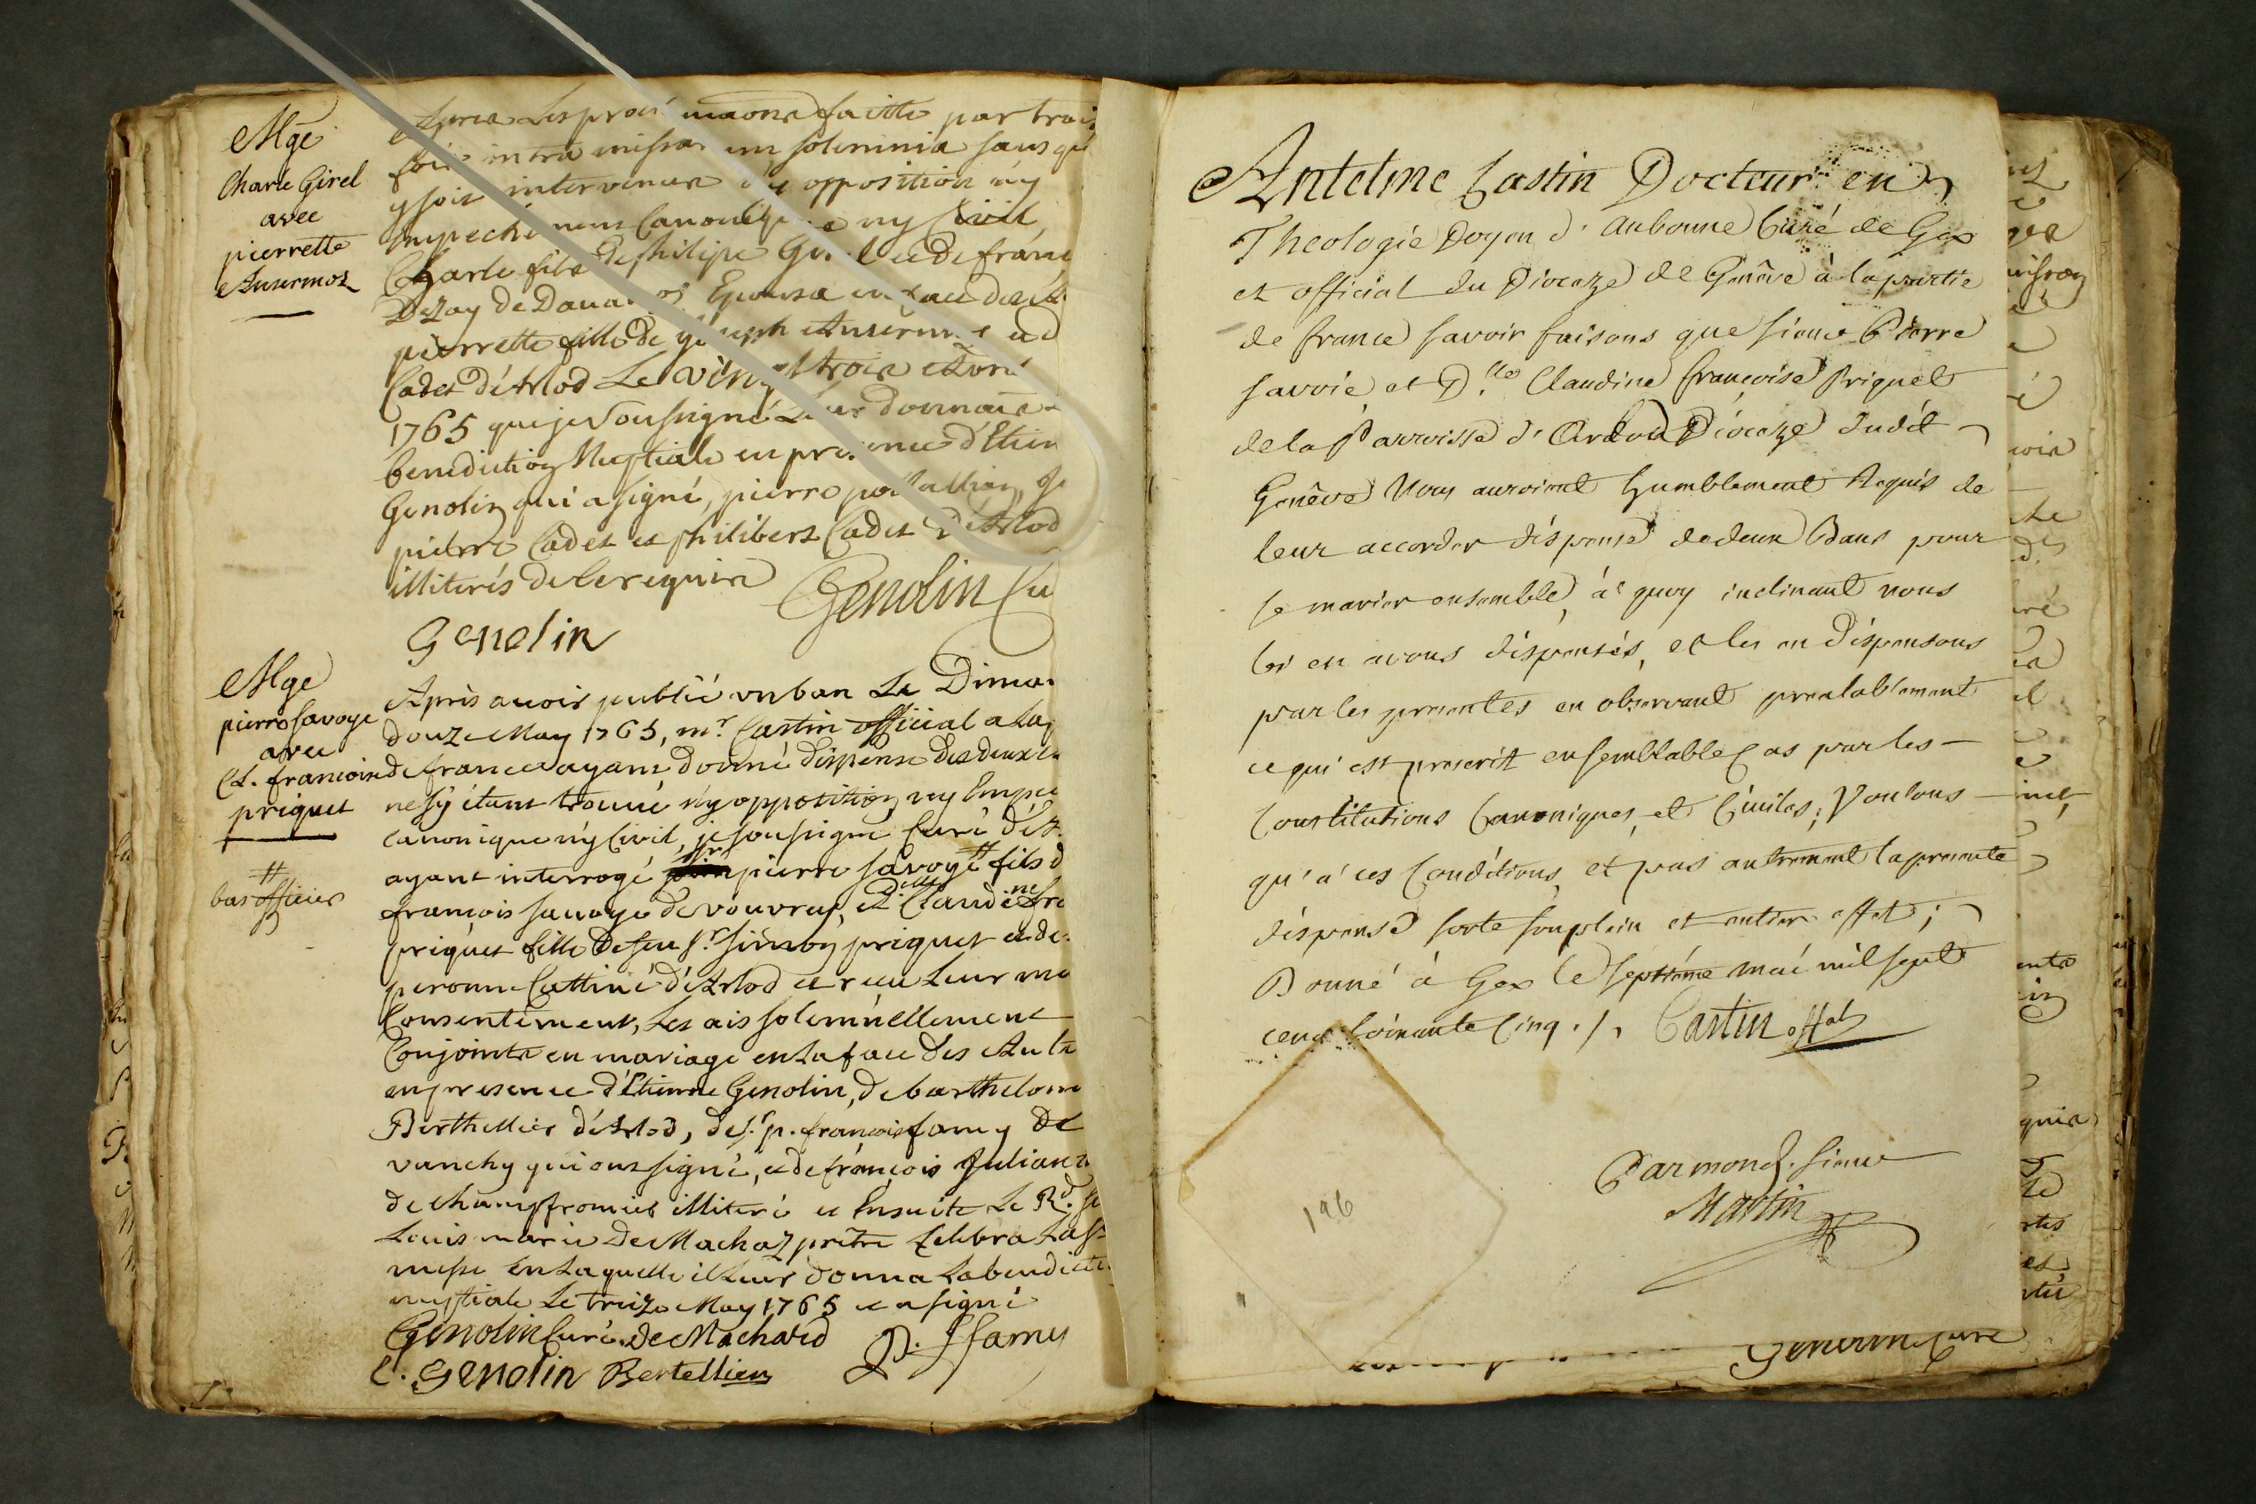 Mge
Charle Girel
avec
pierrette
Ansermoz
Apres les faitte par trois
fois intra missar um solemnia sans qu
y soit intervenue ny opposition ny
ny Civil
Charle fils de philipe et de
Dezay de
pierrette fille de Joseph et d
Cadet d'Arlod Le vingt trois Avril
1765 que je soussigné Leur donnai
benediction Nuptiale en presence d'Etien
Genolin qui a signé, pierre
pierre Cadet et philibert Cadet d'Arlod
illiterés de ce requis Genolin Cu
Genolin
Mge
pierre savoye
avec
Cl. francoise
priquet
#
bas officier
Apris avoir publié un ban Le Diman
douze May 1765, mr. Castin official a la p
de france ayant donné dispense des deux a
ne s'y étant trouvé n'y opposition ny Empe
canonique n'y Civil, je soussigné Curé d'A
ayant interrogé sr pierre savoye # fils d
francois savoye de vouvray, et Dlle Claudine fra
priquet fille de feu sr. simon priquet et de
peronne Cattin d'Arlod et recu Leur mu
Consentement, Les ais solemnellement
Conjoints en mariage en La face des Aute
en presence d'Etienne Genolin, de barthelom
Berthellier d'Arlod, de sr. p. francois famy de
vanchy qui ont signé, et de françois Juliand
de champfromier illiteré et Ensuite Le Rd. s
Louis marie De Machaz prêtre Celebra La ste
messe En Laquelle il Leur donna La benedicti
nuptiale Le treize May 1765 et a signé
Genolin Curé De Machard P. ffamy
E. Genolin Bertellier
Antelme Castin Docteur en
Theologie Doyen d'Aubonne Curé de Gex
et official du Diocaze de Genêve à la partie
de france savoir faisons que sieur Pierre
savoie et D.lle Claudine françoise Priquet
de la Parroisse d'Arlod Diocaze dudit
Genêve Nous auroient humblement Requis de
leur accorder dispense de deux Bans pour
se marier ensemble, à quoy inclinant nous
les en avons dispensés, et les en dispensons
par les presentes en observant prealablement
ce qui est prescrit en semblable Cas par les
Constitutions Canoniques, et Civiles; Voulons
qu'a ces Conditions, et pas autrement la presente
dispense sorte son plein et entier effet;
Donné à Gex le septième mai mil sept
cent soixante Cinq ./. Castin offal
Par mond. sieur
Martin
196
Genolin Curé